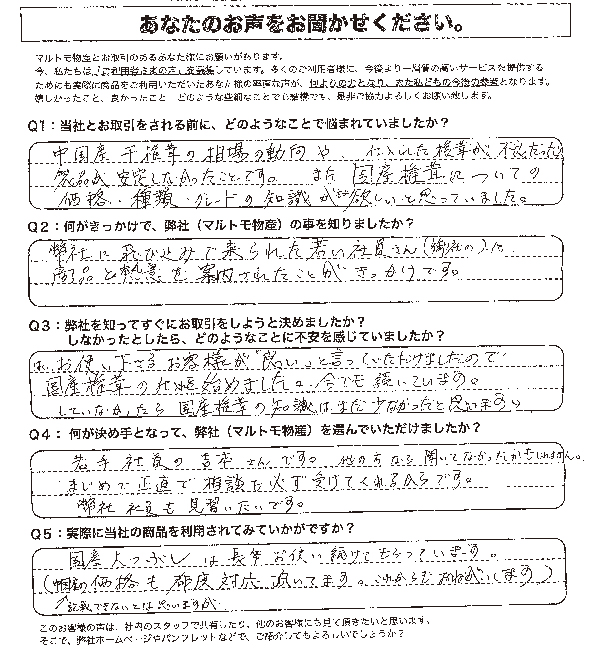 あなたのお声をお聞かせください。
マルトモ物産とお取引のあるあなた様にお願いがあります。
今、私たちは、「ご利用者さまの声」を募集しています。多くのご利用者様に、今後より一層質の高いサービスを提供する
ためにも実際に商品をご利用いただいたあなた様の率直な声が、何よりの力となり、また私どもの今後の参考となります。
嬉しかったこと、良かったこと どのような些細なことでも結構です。是非ご協力よろしくお願い致します。
Q1：当社とお取引をされる前に、どのようなことで悩まれていましたか？
中国産干椎茸の相場の動向や 仕入れた椎茸が不良だったり
商品が安定しなかったことです。また国産椎茸についての
価格・種類・グレードの知識が欲しいと思っていました。
Q2：何がきっかけで、弊社（マルトモ物産）の事を知りましたか？
弊社に飛び込みで来られた若い社員さん（御社の）に
商品と熱意を案内されたことがきっかけです。
Q3：弊社を知ってすぐにお取引をしようと決めましたか？
しなかったとしたら、どのようなことに不安を感じていましたか？
はい お使い下さるお客様が「良い」と言っていただけましたので
国産椎茸の仕入始めました。今でも続いています。
していなかったら国産椎茸の知識はまだ少なかったと思います。
Q4：何が決め手となって、弊社（マルトモ物産）を選んでいただけましたか？
若手社員の吉本さんです。他の方なら聞いてなかったかもしれません。
まじめで正直で相談を必ず受けてくれるからです。
弊社社員も見習いたいです。
Q5：実際に当社の商品を利用されてみていかがですか？
国産大つぶしは長年お使い続けてもらっています。
（中国産の価格も都度対応頂いてます。これからもお願いします）
↑記載できないとは思いますが
このお客様の声は、社内のスタッフで共有したり、他のお客様にも見て頂きたいと思います。
そこで、弊社ホームページやパンフレットなどで、ご紹介してもよろしいでしょうか？